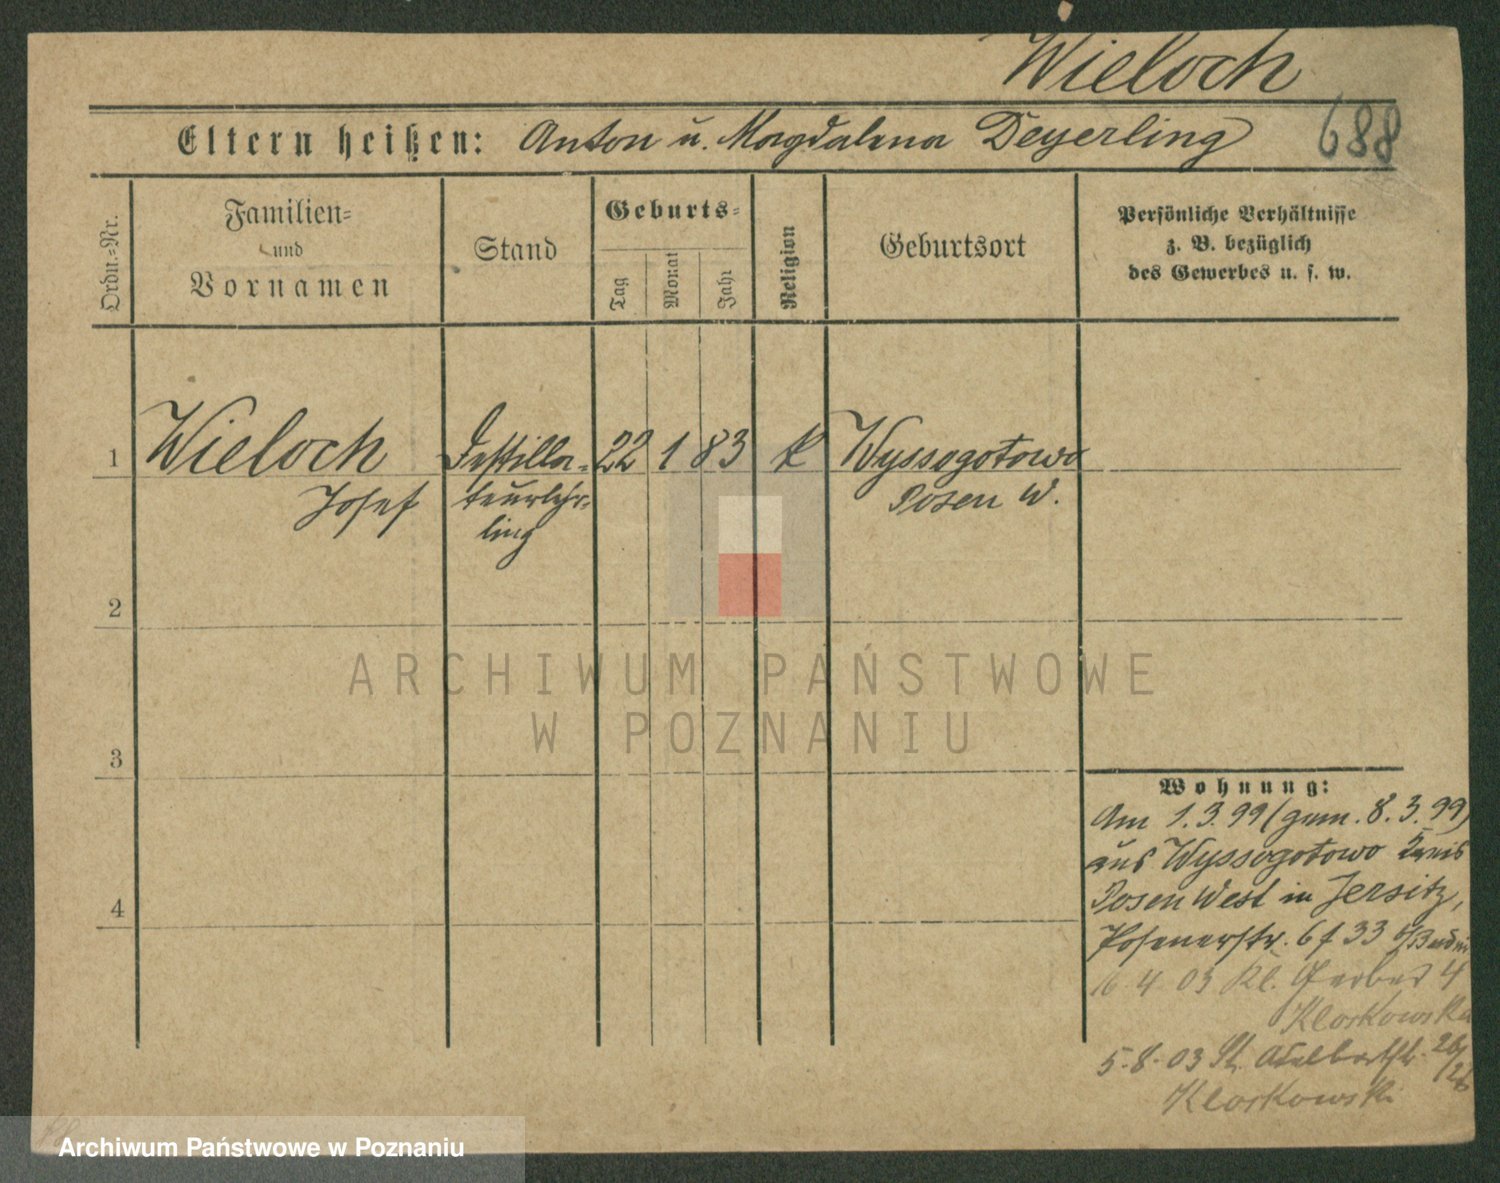 Wieloch
Eltern heißen: Anton u. Magdalena Deyerling
688
Ordn.-Nr.
Familien-
und
Vornamen
Stand
Geburts-
Tag
Monat
Jahr
Religion
Geburtsort
Persönliche Verhältnisse
z. B. bezüglich
des Gewerbes u. s. w.
1
Wieloch
Josef
Destilla-
teurlehr-
ling
22 1 83
k
Wyssogotowo
Posen W.
2
3
4
Wohnung:
Am 1.3.99 (gem. 8.3.99)
aus Wyssogotowo Kreis
Posen West in Jersitz,
Posenerstr. 6 f 33
16 4 03 Kl. Gerber 4
Kloskowska
5-8-03 St. Adalbertstr. 26/
Kloskowski
ARCHIWUM PAŃSTWOWE
W POZNANIU
Archiwum Państwowe w Poznaniu